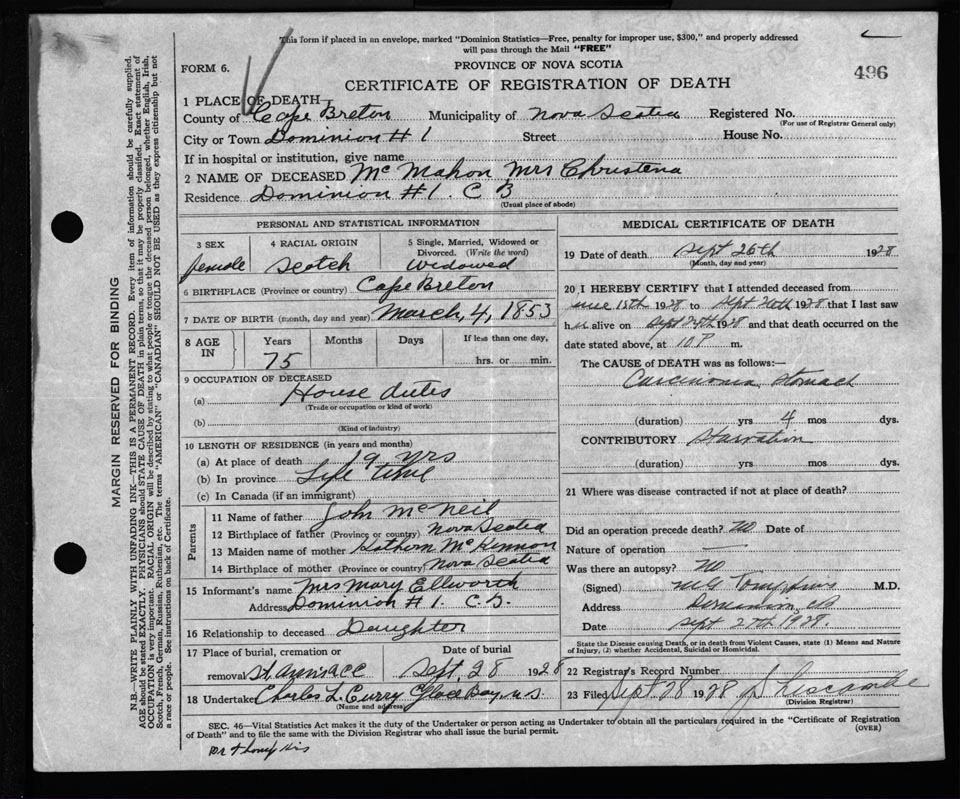 This form if placed in an envelope, marked "Dominion Statistics—Free, penalty for improper use, $300," and properly addressed
will pass through the Mail "FREE"
FORM 6.
PROVINCE OF NOVA SCOTIA
CERTIFICATE OF REGISTRATION OF DEATH
496
1 PLACE OF DEATH
County of Cape Breton Municipality of Nova Scotia Registered No.
(For use of Registrar General only)
City or Town Dominion #1 Street House No.
If in hospital or institution, give name
2 NAME OF DECEASED McMahon Mrs Christena
Residence Dominion #1. C B
(Usual place of abode)
PERSONAL AND STATISTICAL INFORMATION
3 SEX 4 RACIAL ORIGIN 5 Single, Married, Widowed or Divorced. (Write the word)
female Scotch Widowed
6 BIRTHPLACE (Province or country) Cape Breton
7 DATE OF BIRTH (month, day and year) March, 4, 1853
8 AGE IN Years Months Days If less than one day,
75 hrs. or min.
9 OCCUPATION OF DECEASED
(a) House duties
(Trade or occupation or kind of work)
(b)
(Kind of industry)
10 LENGTH OF RESIDENCE (in years and months)
(a) At place of death 19 yrs
(b) In province Life time
(c) In Canada (if an immigrant)
Parents
11 Name of father John McNeil
12 Birthplace of father (Province or country) Nova Scotia
13 Maiden name of mother Kathern McKennon
14 Birthplace of mother (Province or country) Nova Scotia
15 Informant's name Mrs Mary Ellworth
Address Dominion #1. C.B.
16 Relationship to deceased Daughter
17 Place of burial, cremation or Date of burial
removal Sept, 28 1928
18 Undertaker Charles L. Curry Glace Bay N S
(Name and address)
MEDICAL CERTIFICATE OF DEATH
19 Date of death Sept 26th 1928
(Month, day and year)
20 I HEREBY CERTIFY that I attended deceased from
15th 1928 to Sept 26th 1928 that I last saw
her alive on Sept 25th 1928 and that death occurred on the
date stated above, at 10 P m.
The CAUSE of DEATH was as follows:—
Carcinoma Stomach
(duration) yrs 4 mos dys.
CONTRIBUTORY Starvation
(duration) yrs mos dys.
21 Where was disease contracted if not at place of death?
Did an operation precede death? No Date of
Nature of operation —
Was there an autopsy? No
(Signed) M.D.
Address Dominion, CB
Date Sept 27th 1928.
State the Disease causing Death, or in death from Violent Causes, state (1) Means and Nature
of Injury, (2) whether Accidental, Suicidal or Homicidal.
22 Registrar's Record Number
23 Filed Sept 28 1928
(Division Registrar)
SEC. 46—Vital Statistics Act makes it the duty of the Undertaker or person acting as Undertaker to obtain all the particulars required in the "Certificate of Registration
of Death" and to file the same with the Division Registrar who shall issue the burial permit.
(OVER)
MARGIN RESERVED FOR BINDING
N.B.—WRITE PLAINLY WITH UNFADING INK—THIS IS A PERMANENT RECORD. Every item of information should be carefully supplied.
AGE should be stated EXACTLY. PHYSICIANS should STATE CAUSE OF DEATH in plain terms, so that it may be properly classified. Exact statement of
OCCUPATION is very important. RACIAL ORIGIN will be described by stating to what people or tongue the deceased person belonged, whether English, Irish,
Scotch, French, German, Russian, Ruthenian, etc. The terms "AMERICAN" or "CANADIAN" SHOULD NOT BE USED as they express citizenship but not
a race or people. See instructions on back of Certificate.